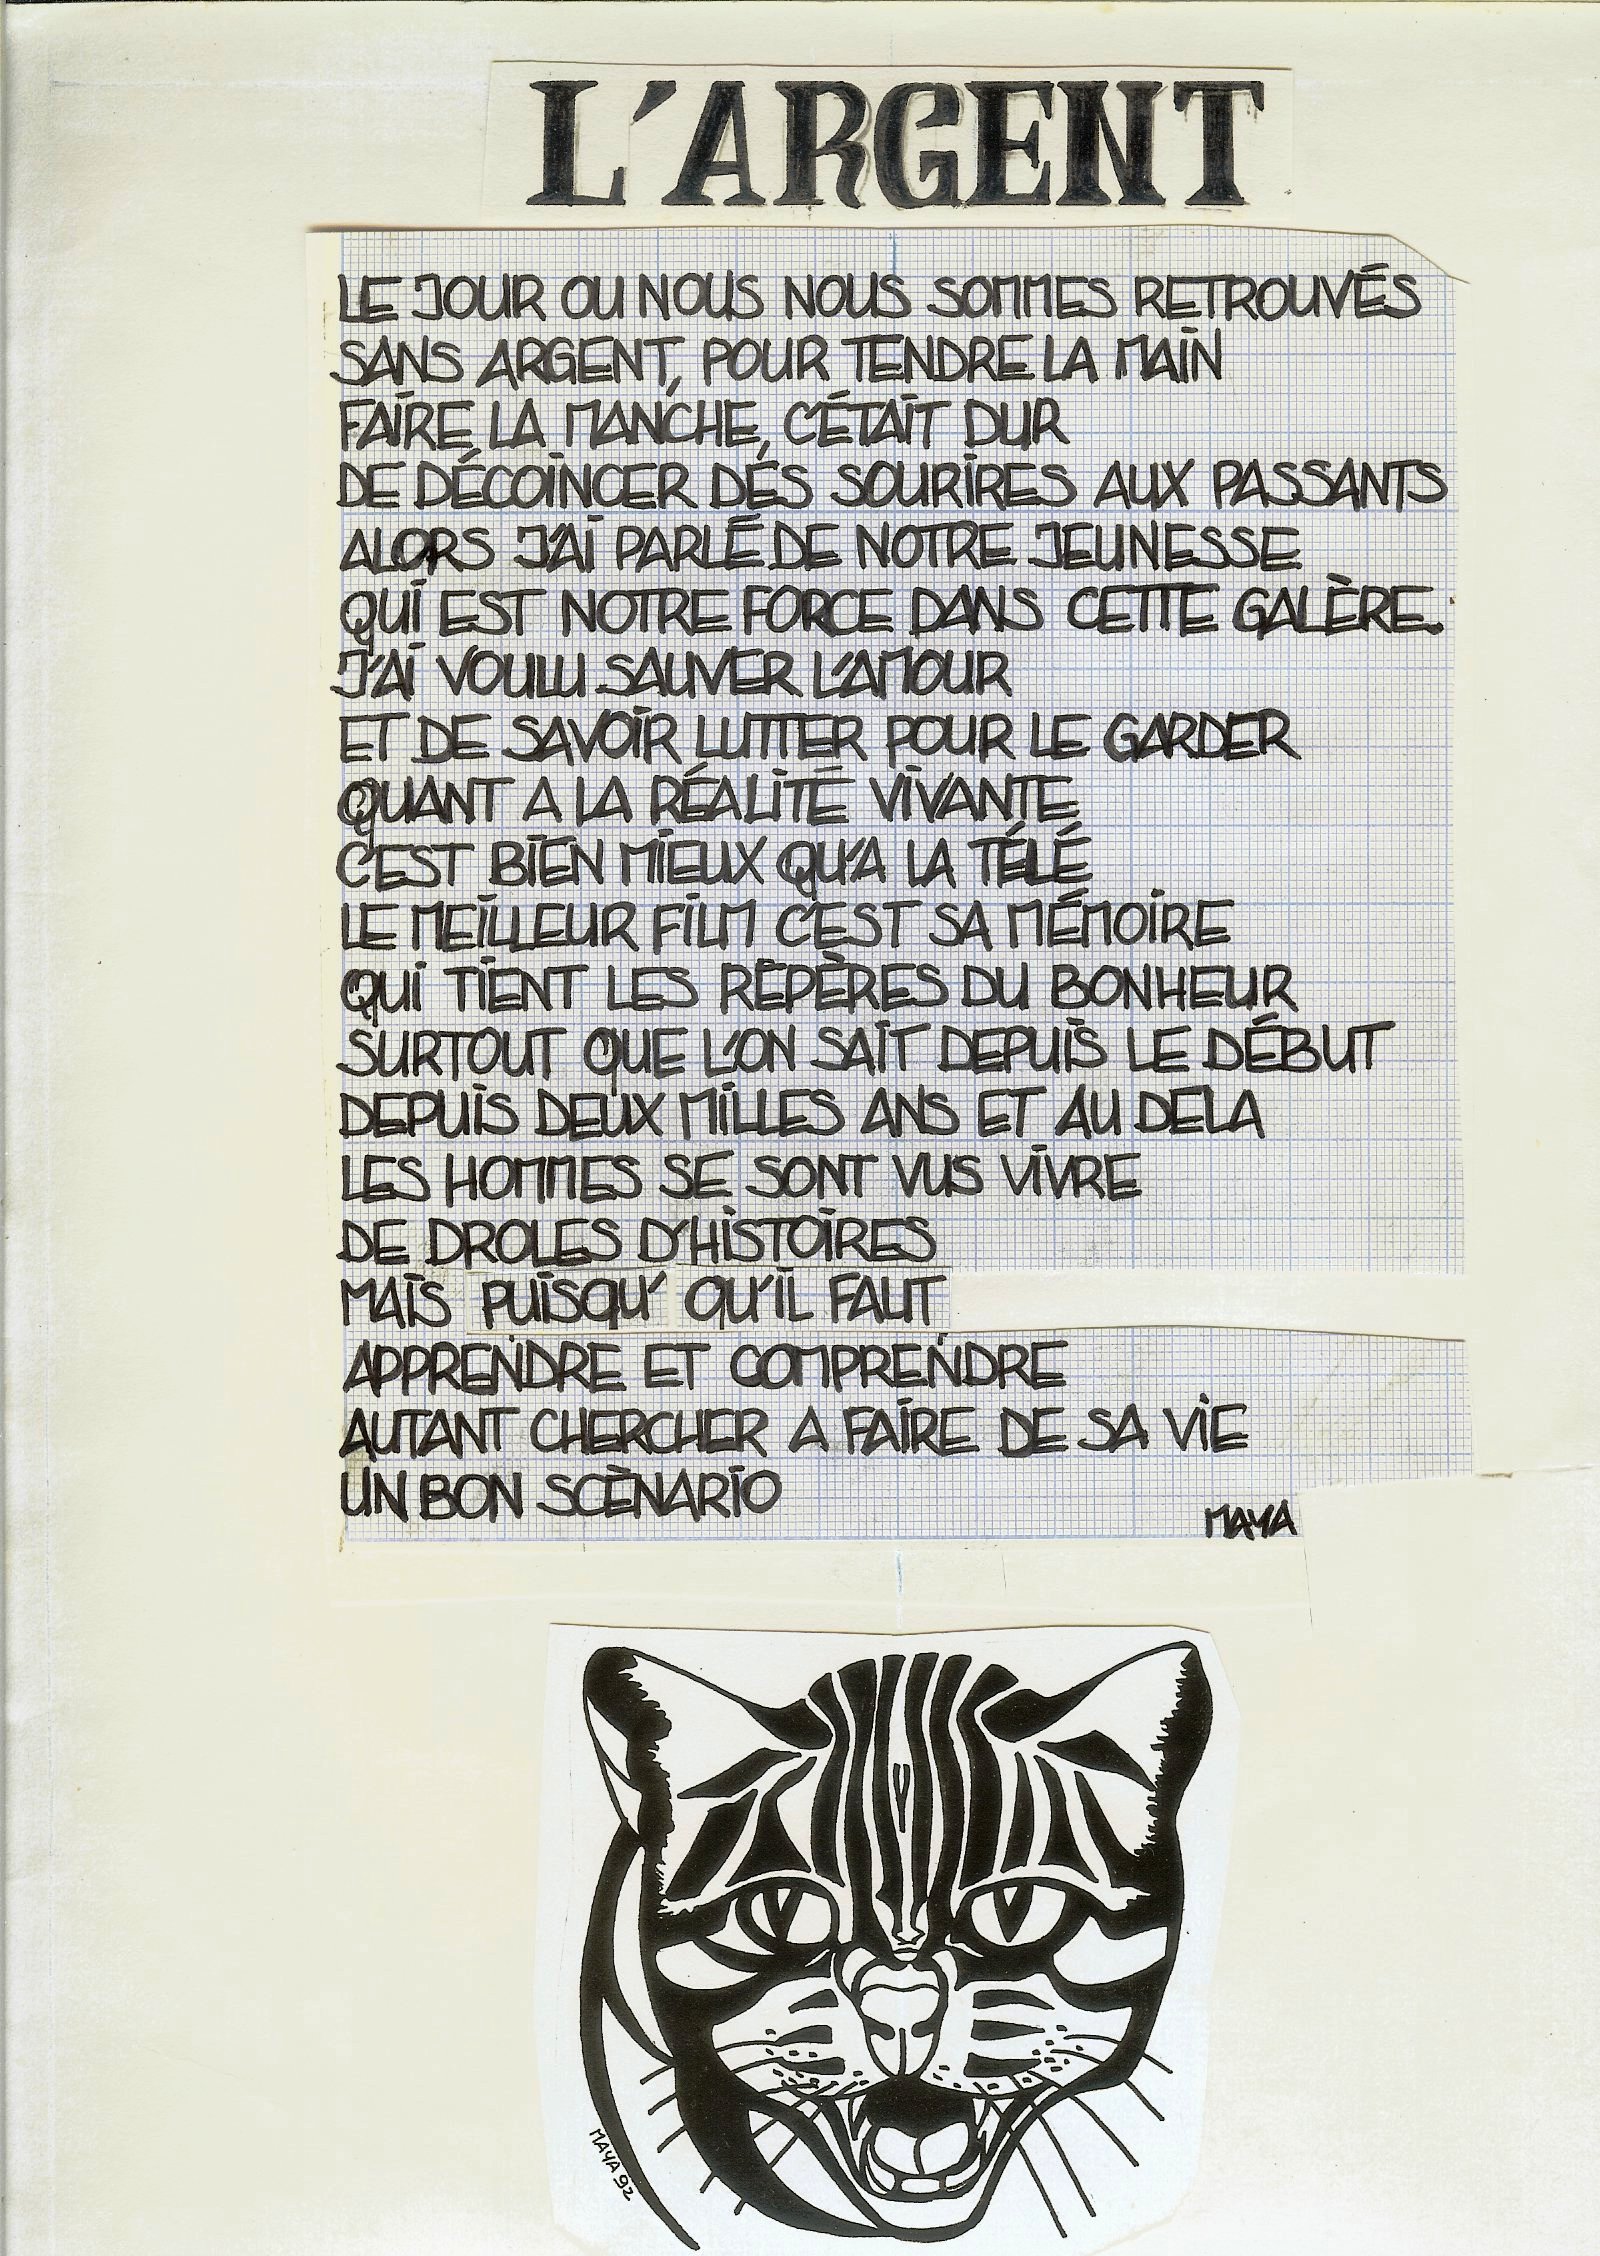 L'ARGENT
LE JOUR OU NOUS NOUS SOMMES RETROUVÉS
SANS ARGENT, POUR TENDRE LA MAIN
FAIRE LA MANCHE, C'ÉTAIT DUR
DE DÉCOINCER DÉS SOURIRES AUX PASSANTS
ALORS J'AI PARLÉ DE NOTRE JEUNESSE
QUI EST NOTRE FORCE DANS CETTE GALÈRE.
J'AI VOULU SAUVER L'AMOUR
ET DE SAVOIR LUTTER POUR LE GARDER
QUANT A LA RÉALITÉ VIVANTE
C'EST BIEN MIEUX QU'A LA TÉLÉ
LE MEILLEUR FILM C'EST SA MÉMOIRE
QUI TIENT LES RÉPÈRES DU BONHEUR
SURTOUT QUE L'ON SAIT DEPUIS LE DÉBUT
DEPUIS DEUX MILLES ANS ET AU DELA
LES HOMMES SE SONT VUS VIVRE
DE DROLES D'HISTOIRES
MAIS PUISQU' QU'IL FAUT
APPRENDRE ET COMPRENDRE
AUTANT CHERCHER A FAIRE DE SA VIE
UN BON SCÈNARIO
MAYA
MAYA 92